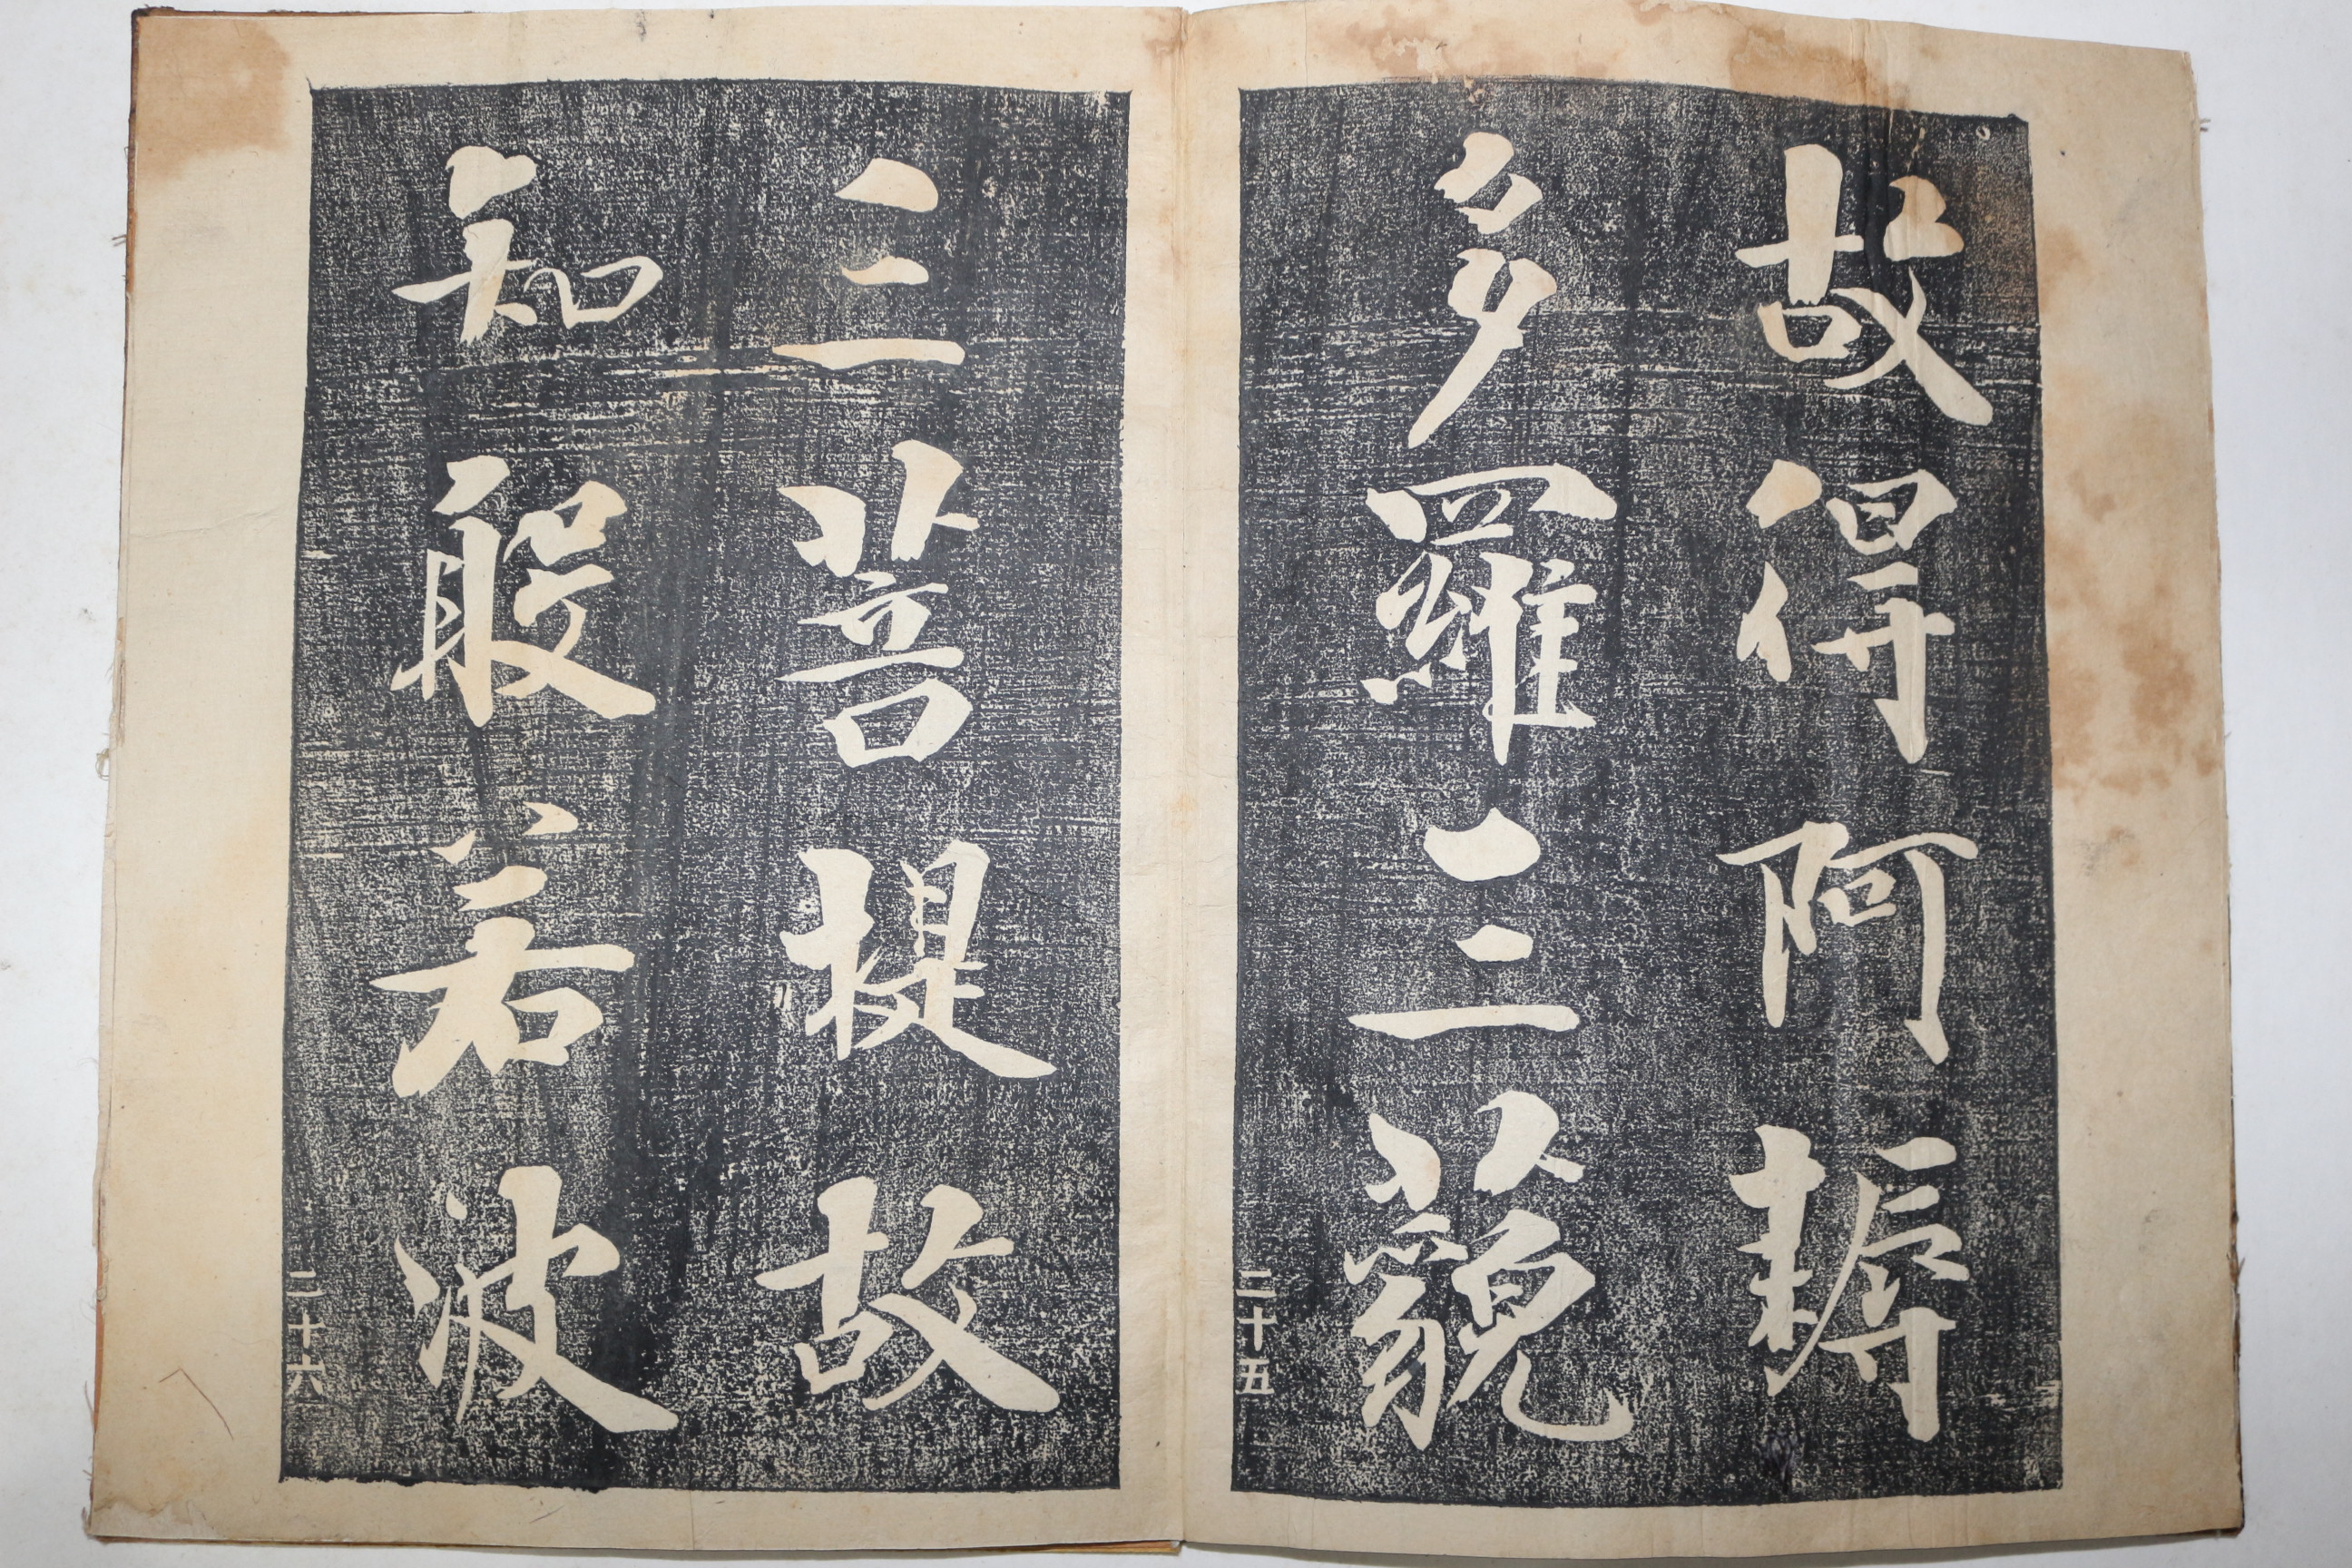 故得阿耨
多羅三藐
二十五
三菩提故
知般若波
二十六